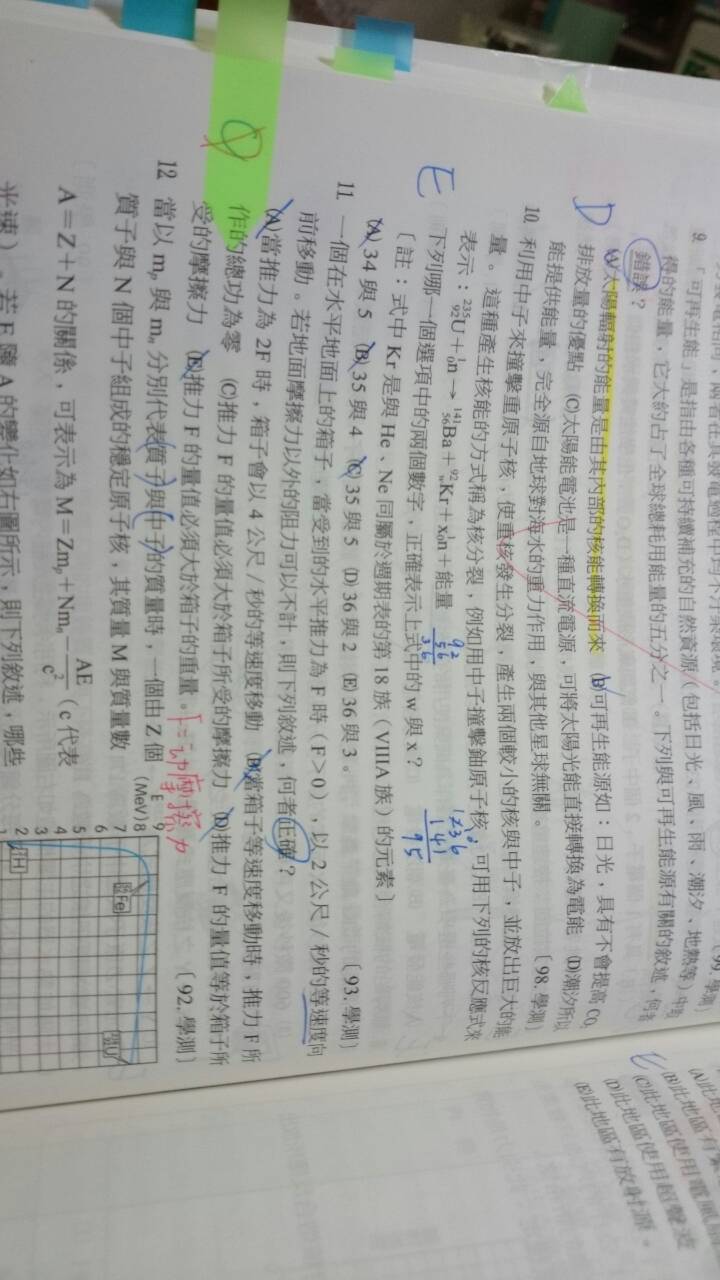 9. 「可再生能」是指由各種可持續補充的自然資源(包括日光、風、雨、潮汐、地熱等)中
得的能量,它大約占了全球總耗用能量的五分之一。下列與可再生能源有關的敘述,何者
錯誤?
D
(A)太陽輻射的能量是由其內部的核能轉換而來 (B)可再生能源如:日光,具有不會提高 CO₂
排放量的優點 (C)太陽能電池是一種直流電源,可將太陽光能直接轉換為電能 (D)潮汐所以
能提供能量,完全源自地球對海水的重力作用,與其他星球無關。 〔98.學測〕
10. 利用中子來撞擊重原子核,使重核發生分裂,產生兩個較小的核與中子,並放出巨大的能
量。這種產生核能的方式稱為核分裂,例如用中子撞擊鈾原子核,可用下列的核反應式來
表示:²³⁵₉₂U+¹₀n→¹⁴¹₅₆Ba+⁹²wKr+x¹₀n+能量
92
56
36
1236
141
95
E
下列哪一個選項中的兩個數字,正確表示上式中的 w 與 x?
〔註:式中 Kr 是與 He、Ne 同屬於週期表的第 18 族(VIIIA 族)的元素〕
(A) 34 與 5 (B) 35 與 4 (C) 35 與 5 (D) 36 與 2 (E) 36 與 3。 〔93.學測〕
11. 一個在水平地面上的箱子,當受到的水平推力為 F 時(F>0),以 2 公尺/秒的等速度向
前移動。若地面摩擦力以外的阻力可以不計,則下列敘述,何者正確?
(A)當推力為 2F 時,箱子會以 4 公尺/秒的等速度移動 (B)當箱子等速度移動時,推力 F 所
作的總功為零 (C)推力 F 的量值必須大於箱子所受的摩擦力 (D)推力 F 的量值等於箱子所
受的摩擦力 (E)推力 F 的量值必須大於箱子的重量。 〔92.學測〕
摩擦力
12 當以 mₚ 與 mₙ 分別代表質子與中子的質量時,一個由 Z 個
質子與 N 個中子組成的穩定原子核,其質量 M 與質量數
A=Z+N 的關係,可表示為 M=Zmₚ+Nmₙ−AE/c²(c 代表
光速)。若 E 隨 A 的變化如右圖所示,則下列敘述,哪些
E
(MeV)
9
8
7
6
5
4
3
2
Fe
U
H
(B)此地區有
(C)此地區使用電
(D)此地區使用超聲波
(E)此地區有放射源。